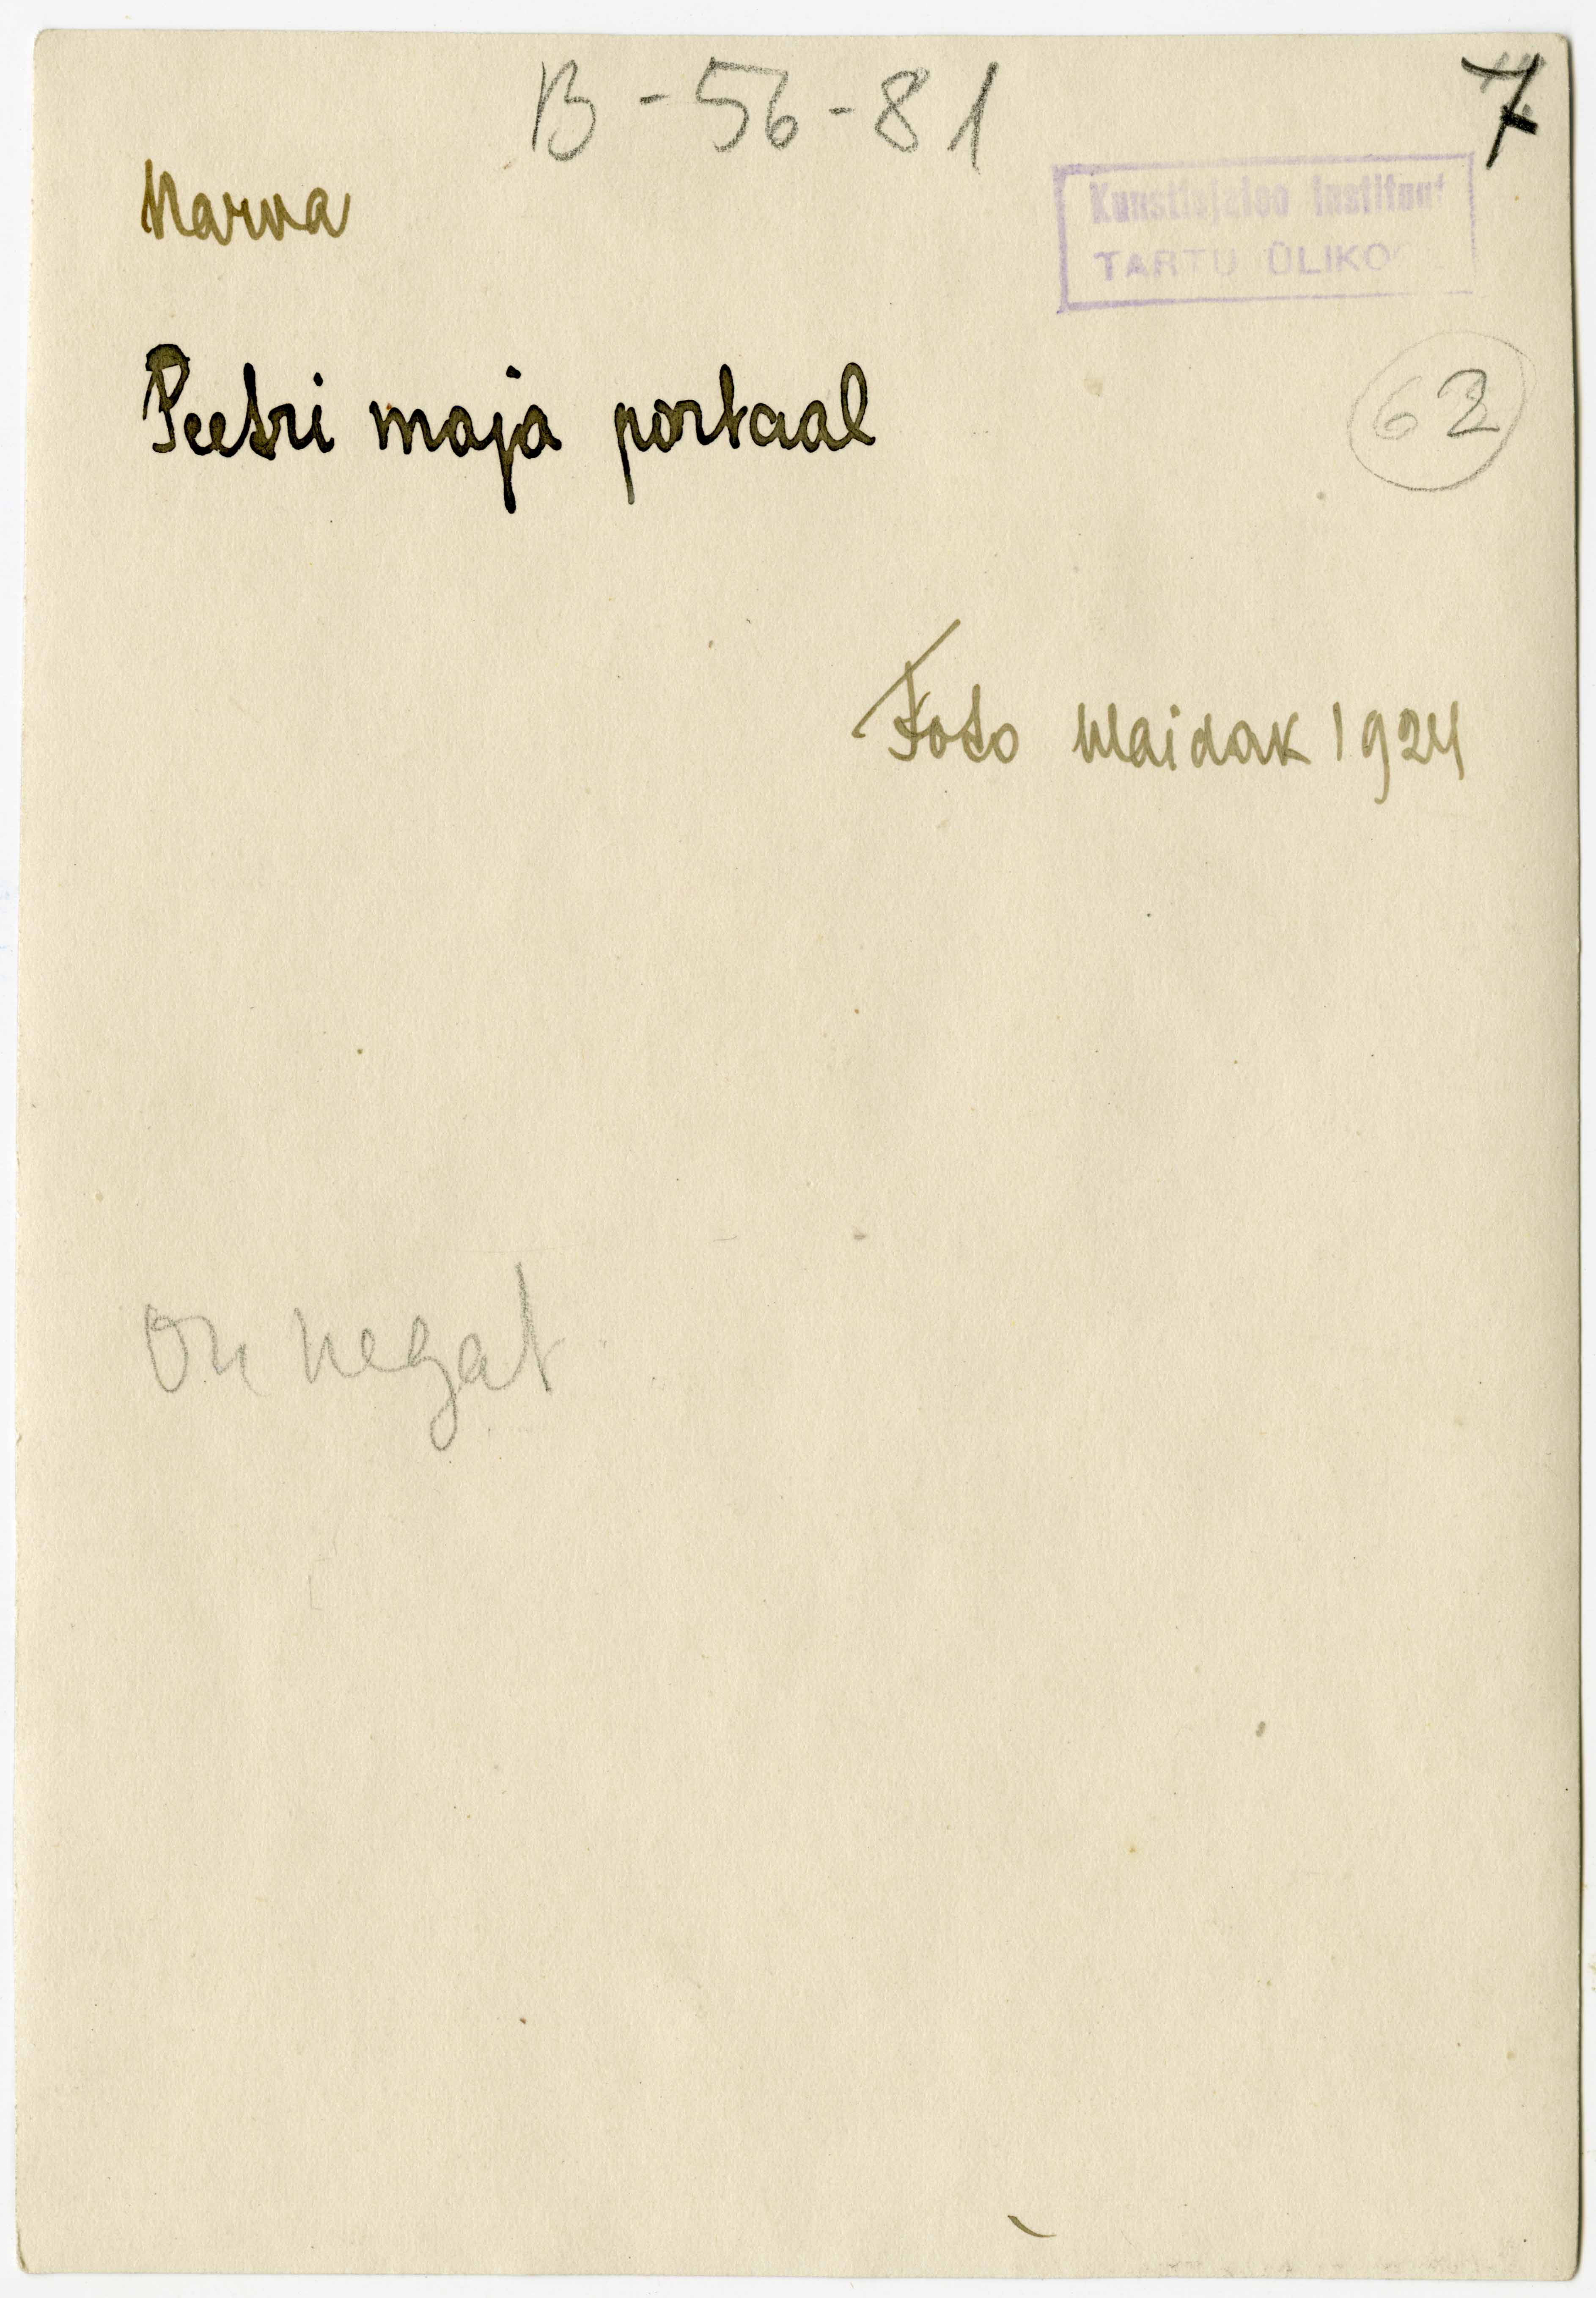 B-56-81
7
Narva
Kunstiajaloo Instituut
TARTU ÜLIKOOL
Peetri maja portaal
62
Foto Maidak 1924
On negat